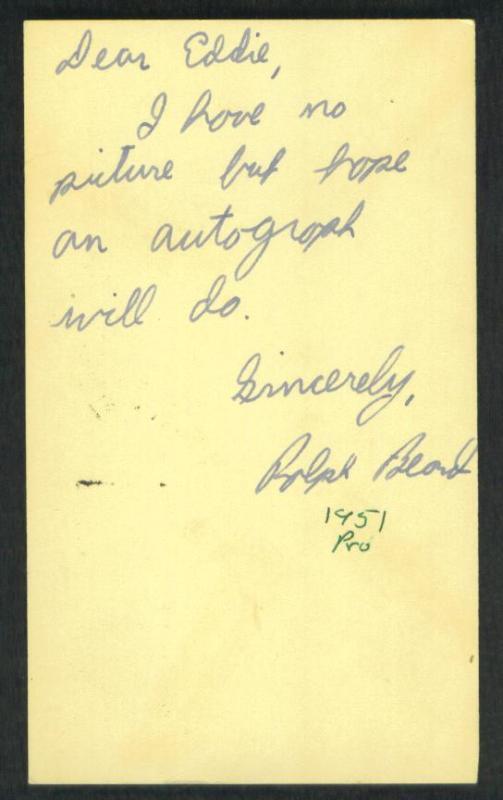 Dear Eddie,
I have no
picture but hope
an autograph
will do.
Sincerely,
Ralph Beard
1951
Pro